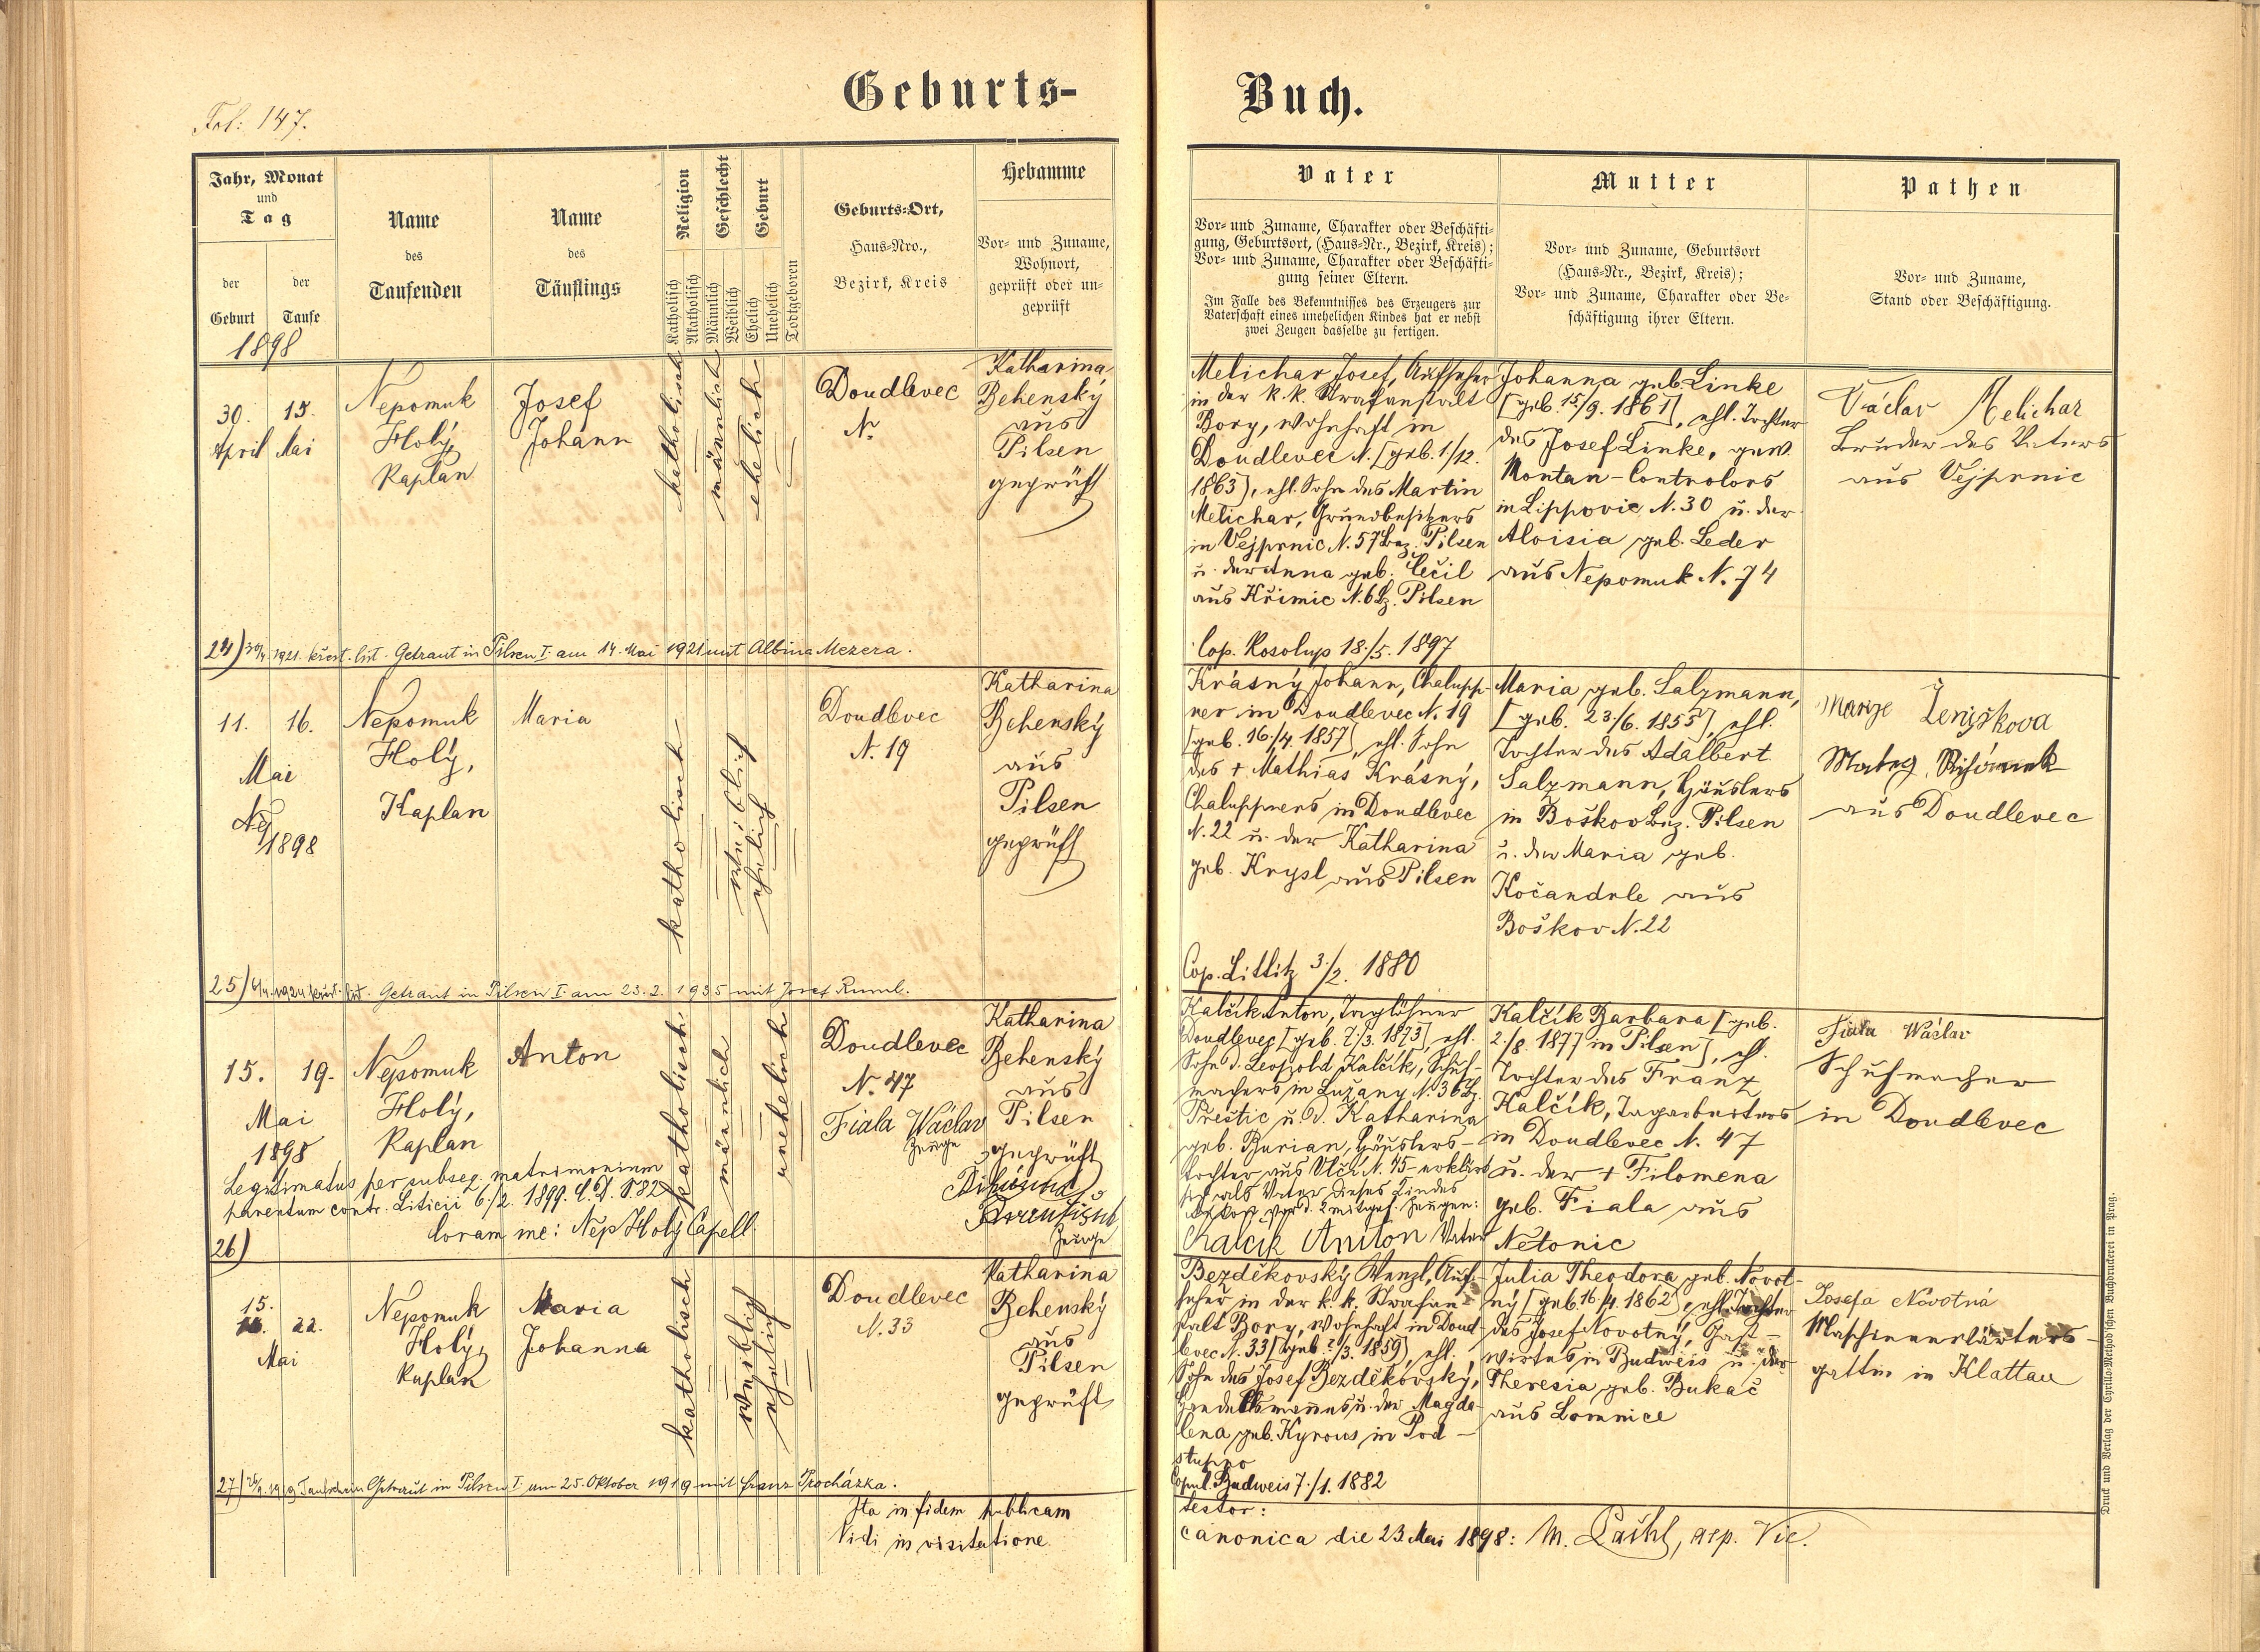 Fol: 147.
Geburts-
Buch.
Jahr, Monat
und
Tag
der
Geburt
der
Taufe
1898
Name
des
Taufenden
Name
des
Täuflings
Religion
Katholisch
Akatholisch
Geschlecht
Männlich
Weiblich
Geburt
Ehelich
Unehelich
Todtgeboren
Geburts-Ort,
Haus-Nro.,
Bezirk, Kreis
Hebamme
Vor- und Zuname,
Wohnort,
geprüft oder un-
geprüft
Vater
Vor- und Zuname, Charakter oder Beschäfti-
gung, Geburtsort, (Haus-Nr., Bezirk, Kreis);
Vor- und Zuname, Charakter oder Beschäfti-
gung seiner Eltern.
Im Falle des Bekenntnisses des Erzeugers zur
Vaterschaft eines unehelichen Kindes hat er nebst
zwei Zeugen dasselbe zu fertigen.
Mutter
Vor- und Zuname, Geburtsort
(Haus-Nr., Bezirk, Kreis);
Vor- und Zuname, Charakter oder Be-
schäftigung ihrer Eltern.
Pathen
Vor- und Zuname,
Stand oder Beschäftigung.
30.
April
15.
Mai
Nepomuk
Holý,
Kaplan
Josef
Johann
katholisch
männlich
ehelich
Doudlevec
N.
Katharina
Behenský
aus
Pilsen
geprüft
Melichar Josef, Aufseher
in der k. k. Strafanstalt
Bory, wohnhaft in
Doudlevec N. [geb. 1/12.
1863], ehl. Sohn des Martin
Melichar, Grundbesitzers
in Vejprnic N. 57 Bez. Pilsen
u. der Anna geb. Cečil
aus Křimic N. 6 Bz. Pilsen
Cop. Kosolup 18./5. 1897
Johanna geb. Linke
[geb. 15/9. 1861], ehl. Tochter
des Josef Linke, gew.
Montan-Controlors
in Lippovic N. 30 u. der
Aloisia geb. Leder
aus Nepomuk N. 74
Václav Melichar
Bruder des Vaters
aus Vejprnic
24) 30/4 1921. křest. list. Getraut in Pilsen I. am 14. Mai 1921 mit Albina Mezera.
11.
16.
Mai
1898
Nepomuk
Holý,
Kaplan
Maria
katholisch
weiblich
ehelich
Doudlevec
N. 19
Katharina
Behenský
aus
Pilsen
geprüft
Krásný Johann, Chalupp-
ner in Doudlevec N. 19
[geb. 16./4. 1857], ehl. Sohn
des + Mathias Krásný,
Chaluppners in Doudlevec
N. 22 u. der Katharina
geb. Krysl aus Pilsen
Cop. Littitz 3./2. 1880
Maria geb. Salzmann,
[geb. 23/6. 1855], ehl.
Tochter des Adalbert
Salzmann, Häuslers
in Boškov Bez. Pilsen
u. der Maria geb.
Kočandrle aus
Boškov N. 22
Marye Ženíškova
aus Doudlevec
25) křest. list. Getraut in Pilsen I. am 23. 2. 1935 mit Josef Ruml.
15.
19.
Mai
1898
Nepomuk
Holý,
Kaplan
Anton
katholisch
männlich
unehelich
Doudlevec
N. 47
Fiala Wáclav
Zeuge
Katharina
Behenský
aus
Pilsen
geprüft
Zeuge
Legitimatus per subseq. matrimonium
parentum contr. Liticii 6./2. 1899. L. D. P. 82
Coram me: Nep Holý Capell.
26)
Kalčík Anton, Taglöhner
Doudlevec [geb. 7/3. 1873], ehl.
Sohn d. Leopold Kalčík, Schuh-
machers in Lužany N. 36 Bz.
Přeštic u. d. Katharina
geb. Burian, Häuslers-
tochter aus Vlčí N. 15 - erklärt
sich als Vater dieses Kindes
vor d. 2 mitgef. Zeugen:
Chalcik Aniton Vater
Kalčík Barbara [geb.
2./8. 1877 in Pilsen], ehl.
Tochter des Franz
Kalčík, Tagarbeiters
in Doudlevec N. 47
u. der + Filomena
geb. Fiala aus
Netonic
Fiala Wáclav
Schuhmacher
in Doudlevec
15.
22.
Mai
Nepomuk
Holý,
Kaplan
Maria
Johanna
katholisch
weiblich
ehelich
Doudlevec
N. 33
Katharina
Behenský
aus
Pilsen
geprüft
Bezděkovský Wenzl, Auf-
seher in der k. k. Strafan-
stalt Bory, wohnhaft in Doud-
levec N. 33 [geb. 2/3. 1859], ehl.
Sohn des Josef Bezděkovský,
Handelsmannes u. der Magda-
lena geb. Kyrous in Pod-
stupno
Copul. Budweis 7./1. 1882
Julia Theodora geb. Novot-
ný [geb. 16./4. 1862], ehl. Tochter
des Josef Novotný, Gast-
wirtes in Budweis u. der
Theresia geb. Bukač
aus Lomnice
Josefa Novotná
Maschinenwärters-
gattin in Klattau
27) Taufschein Getraut in Pilsen I. am 25. Oktober 1919 mit Franz Procházka.
Ita in fidem publicam
testor:
Vidi in visitatione
canonica die 23 Mai 1898: M. , aep. Vic.
Druck und Verlag der Cyrillo-Method'schen Buchdruckerei in Prag.